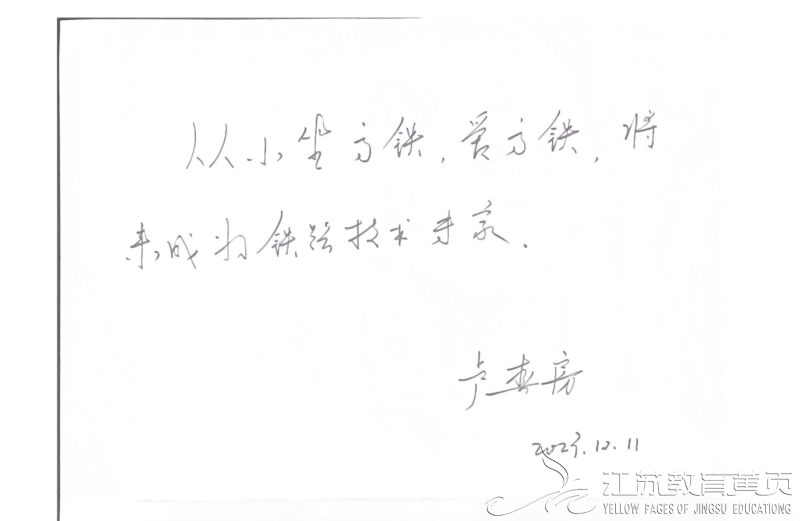 从小坐高铁，爱高铁，将
来成为铁路技术专家．
卢春房
2023.12.11
江苏教育黄页
YELLOW PAGES OF JINGSU EDUCATIONG